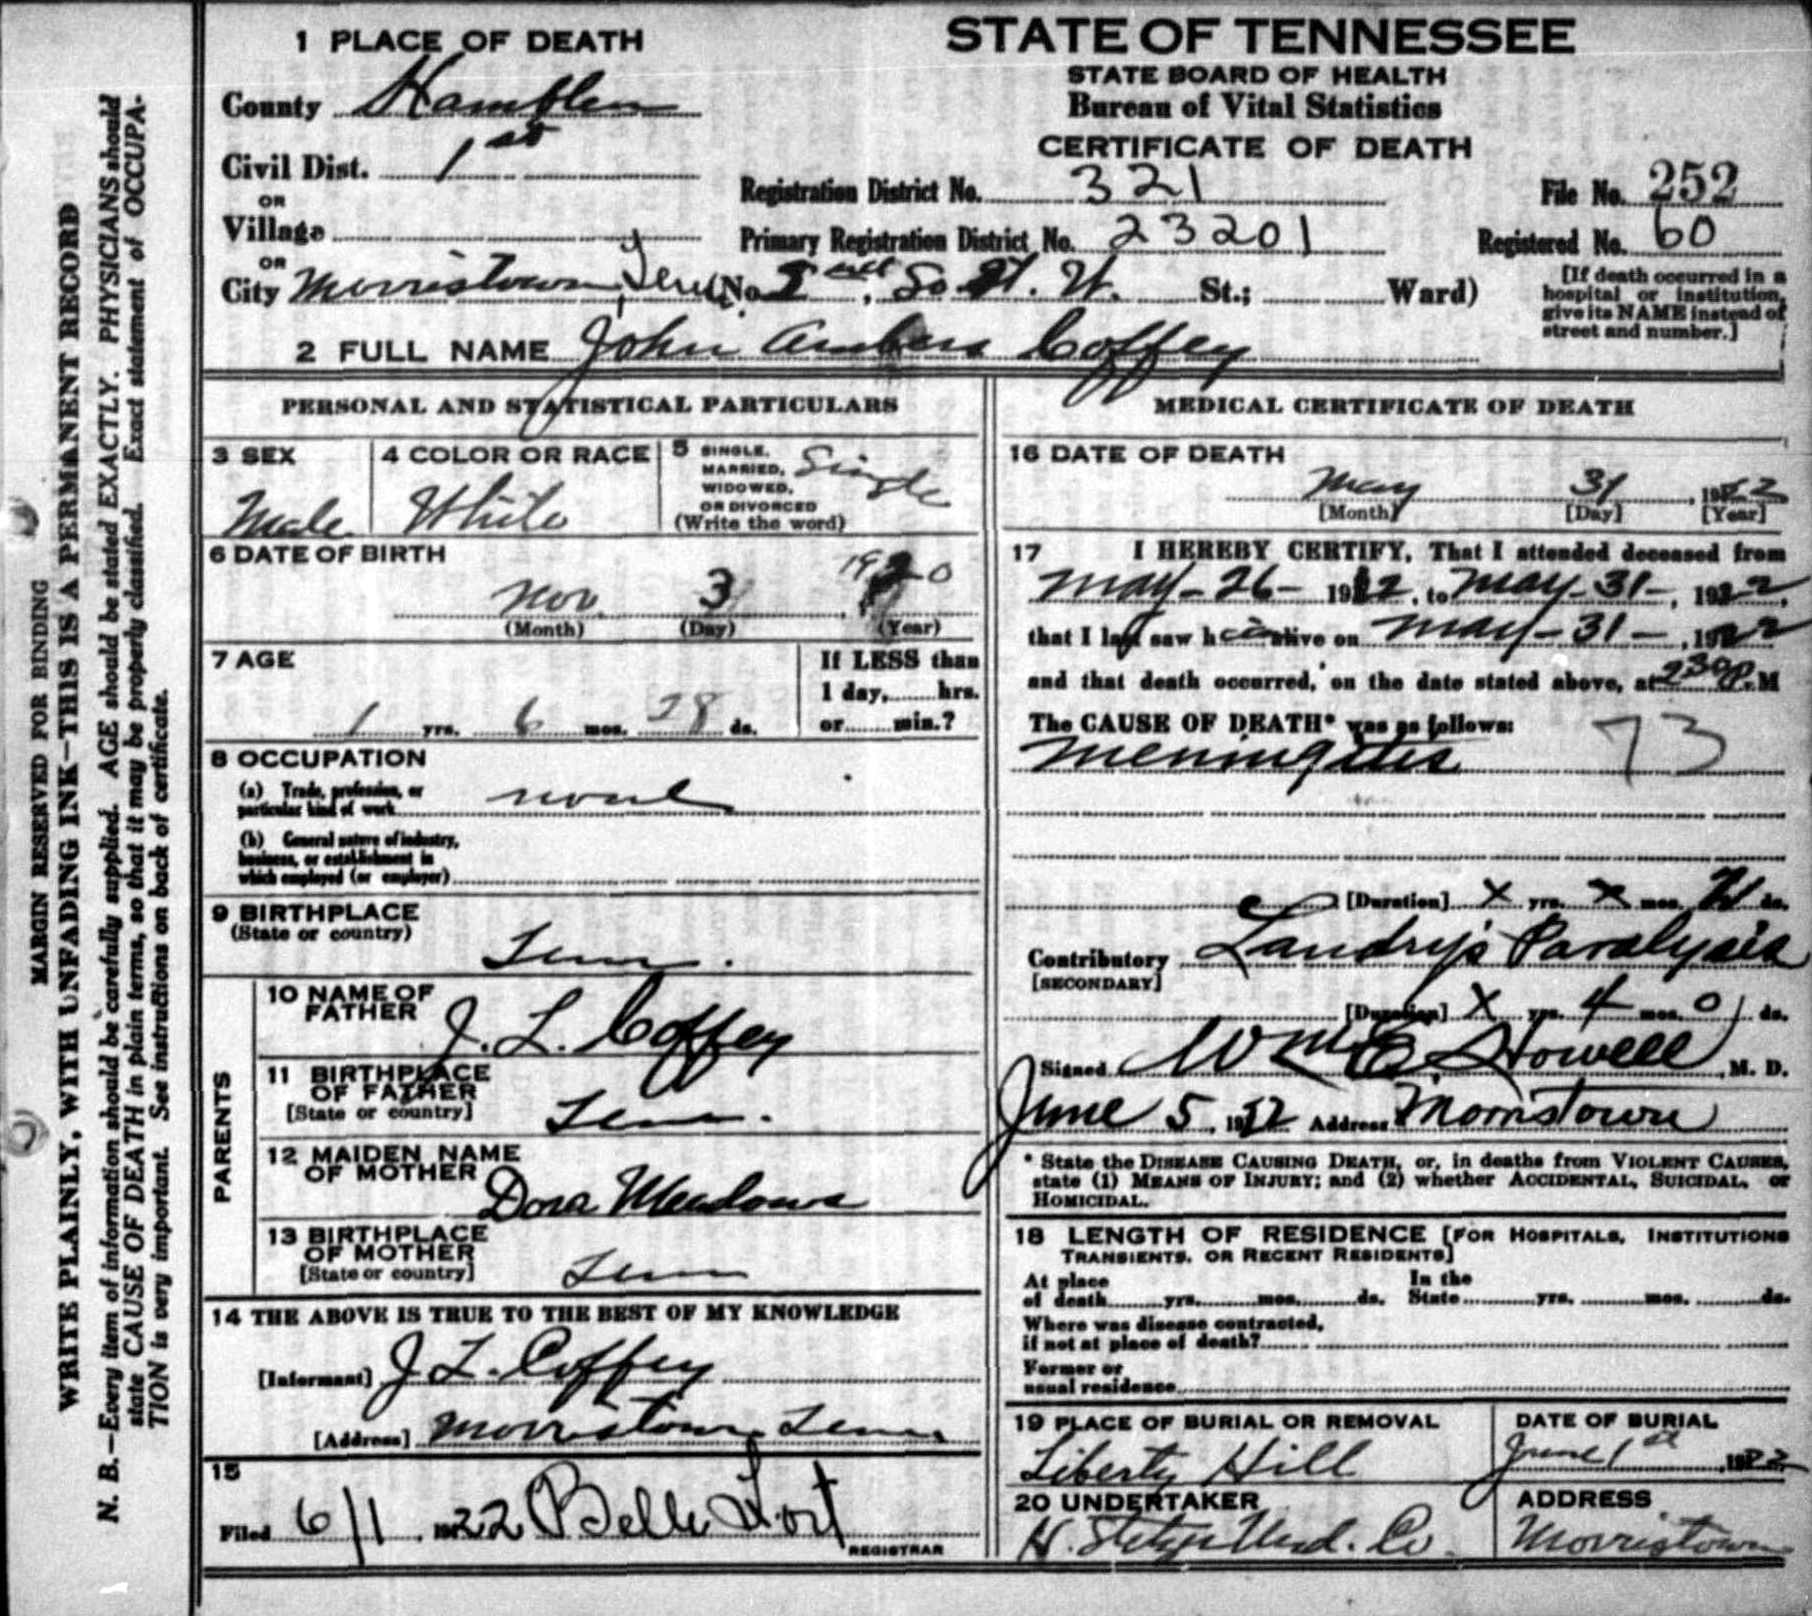 MARGIN RESERVED FOR BINDING
WRITE PLAINLY, WITH UNFADING INK—THIS IS A PERMANENT RECORD
N. B.—Every item of information should be carefully supplied. AGE should be stated EXACTLY. PHYSICIANS should
state CAUSE OF DEATH in plain terms, so that it may be properly classified. Exact statement of OCCUPA-
TION is very important. See instructions on back of certificate.
1 PLACE OF DEATH
County Hamblen
Civil Dist. 1st
OR
Village
OR
City Morristown, Tenn. (No. So. St. W. St.; Ward)
STATE OF TENNESSEE
STATE BOARD OF HEALTH
Bureau of Vital Statistics
CERTIFICATE OF DEATH
Registration District No. 321
File No. 252
Primary Registration District No. 23201
Registered No. 60
[If death occurred in a
hospital or institution,
give its NAME instead of
street and number.]
2 FULL NAME John Ambers Coffey
PERSONAL AND STATISTICAL PARTICULARS
3 SEX
Male
4 COLOR OR RACE
White
5 SINGLE,
MARRIED,
WIDOWED,
OR DIVORCED
(Write the word)
Single
6 DATE OF BIRTH
Nov. 3, 1920
(Month) (Day) (Year)
7 AGE
1 yrs. 6 mos. 28 ds.
If LESS than
1 day, hrs.
or min.?
8 OCCUPATION
(a) Trade, profession, or
particular kind of work none
(b) General nature of industry,
business, or establishment in
which employed (or employer)
9 BIRTHPLACE
(State or country)
Tenn.
PARENTS
10 NAME OF
FATHER
J. L. Coffey
11 BIRTHPLACE
OF FATHER
[State or country]
Tenn.
12 MAIDEN NAME
OF MOTHER
Dora Meadows
13 BIRTHPLACE
OF MOTHER
[State or country]
Tenn
14 THE ABOVE IS TRUE TO THE BEST OF MY KNOWLEDGE
[Informant] J L. Coffey
[Address] Morristown Tenn
15
Filed 6/1, 1922 Belle Fort
REGISTRAR
MEDICAL CERTIFICATE OF DEATH
16 DATE OF DEATH
May 31, 1922
[Month] [Day] [Year]
17 I HEREBY CERTIFY, That I attended deceased from
May-26- 1922, to May-31-, 1922,
that I last saw h alive on May-31-, 1922
and that death occurred, on the date stated above, at 230 P.M
The CAUSE OF DEATH* was as follows:
Meningitis 73
[Duration] X yrs. X mos. ds.
Contributory Landry's Paralysis
[SECONDARY]
[Duration] X yrs. 4 mos. 0 ds.
Signed Wm E. Howell, M. D.
June 5, 1922 Address Morristown
* State the DISEASE CAUSING DEATH, or, in deaths from VIOLENT CAUSES,
state (1) MEANS OF INJURY; and (2) whether ACCIDENTAL, SUICIDAL, or
HOMICIDAL.
18 LENGTH OF RESIDENCE [FOR HOSPITALS, INSTITUTIONS
TRANSIENTS, OR RECENT RESIDENTS]
At place
of death yrs. mos. ds.
In the
State yrs. mos. ds.
Where was disease contracted,
if not at place of death?
Former or
usual residence
19 PLACE OF BURIAL OR REMOVAL
Liberty Hill
DATE OF BURIAL
June 1st 1922
20 UNDERTAKER
H. Und. Co.
ADDRESS
Morristown